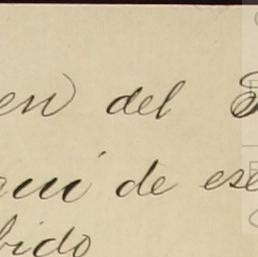 en del
aquí de ese
bido